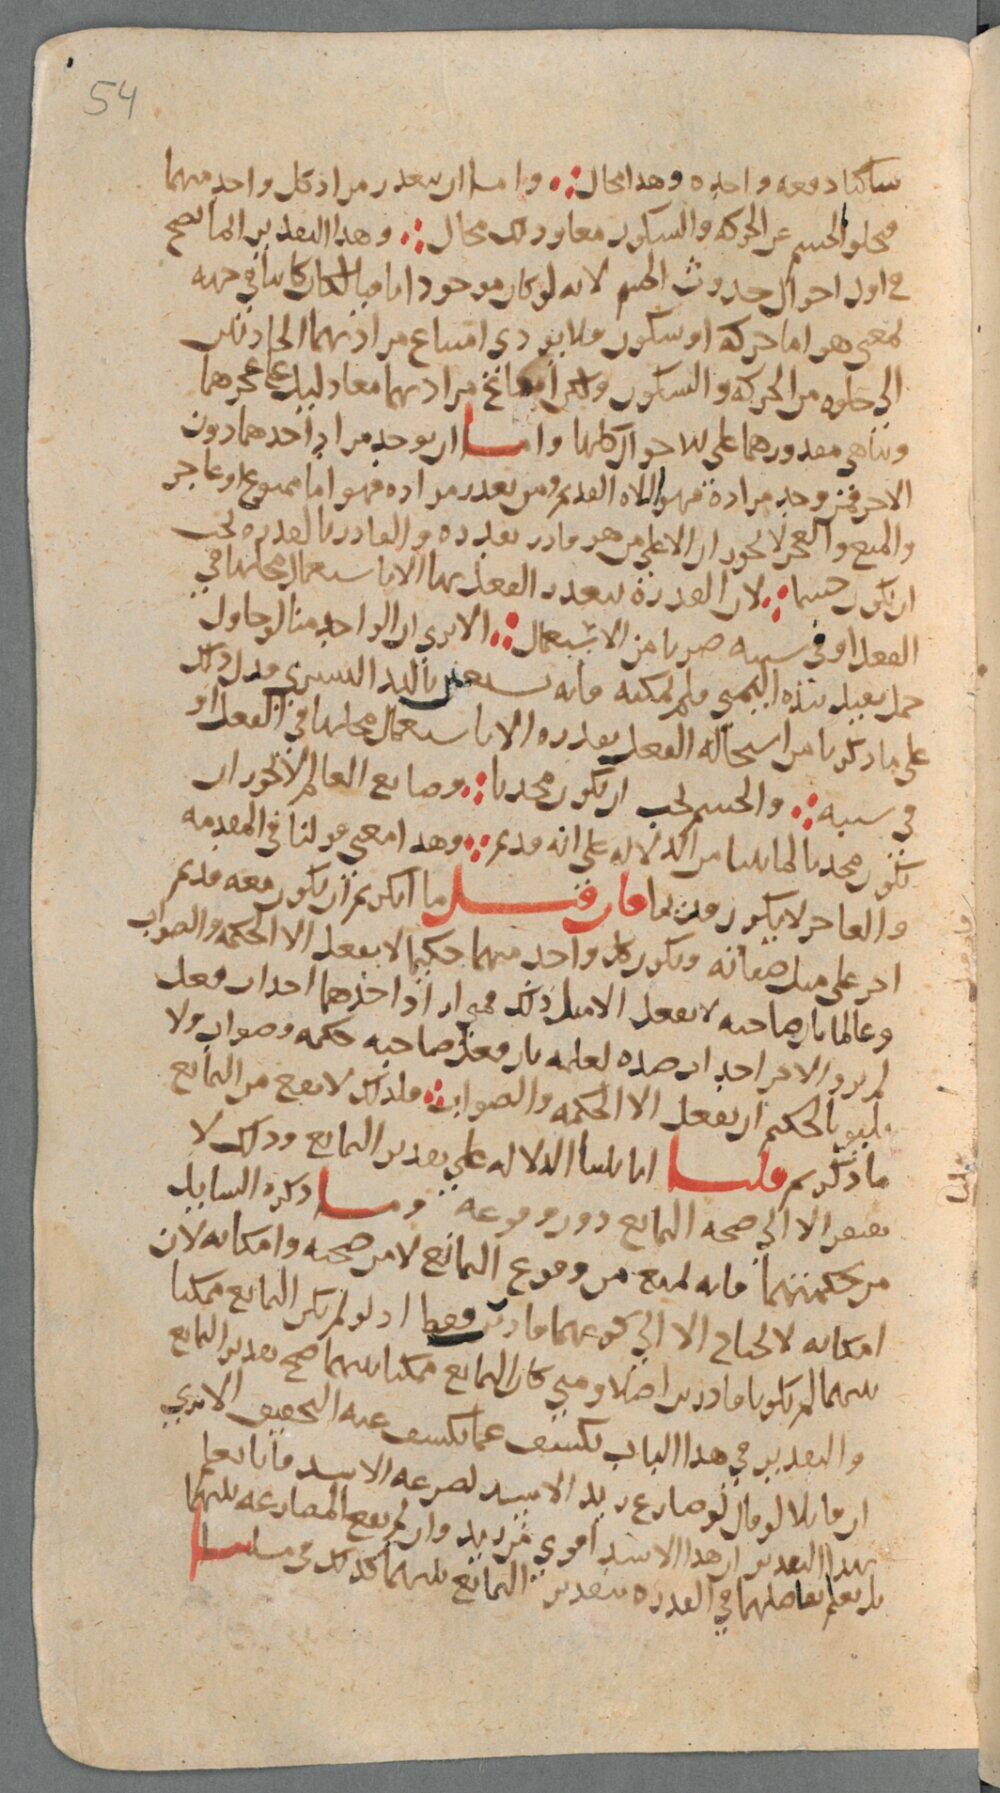 54
ساكنا دفعه واحده وهدا محال ∴ واما ان يتعدر مراد كل واحد منهما
فيخلو الجسم عن الحركه والسكون معا ودلك محال ∴ وهدا التقدير انما يصح
في اول احوال حدوث الجسم لانه لو كان موجودا باقيا لكان كاينا في جهه
لمعنى هو اما حركه او سكون ولا يودي امتناع مراديهما الحادثين
الى خلوه من الحركه والسكون ولكن تمانع مراديهما معا دليل على عجزهما
وتناهي مقدورهما على الاحوال كلها واما ان يوجد مراد احدهما دون
الاخر فمن وجد مراده فهو الاله القديم ومن تعدر مراده فهو اما ممنوع او عاجز
والمنع والعجز لا يجوزان الا على من هو قادر بقدره والقادر بالقدره يجب
ان يكون جسما ∴ لان القدرة يتعدر الفعل بها الا باستعمال محلها في
الفعل او في سببه ضربا من الاستعمال ∴ الا ترى ان الواحد منا لو حاول
حمل ثقيل بيده اليمنى ولم يمكنه فانه يستعين باليد اليسرى فدل دلك
على ما دكرنا من استحاله الفعل بقدره الا باستعمال محلها في الفعل او
في سببه ∴ والجسم يجب ان يكون محدثا ∴ وصانع العالم لا يجوز ان
يكون محدثا لما بينا من الدلاله على انه قديم ∴ وهدا معنى قولنا في المقدمه
والعاجز لا يكون قديما فان قيل ما انكرتم ان يكون معه قديم
اخر على مثل صفاته ويكون كل واحد منهما حكيما لا يفعل الا الحكمه والصواب
وعالما بان صاحبه لا يفعل الا مثل دلك فمتى اراد احدهما احداث فعل
لم يرد الاخر احداث ضده لعلمه بان فعل صاحبه حكمه وصواب ولا
يليق بالحكيم ان يفعل الا الحكمه والصواب ∴ فلدلك لا يقع من التمانع
ما دكرتم قلنا انا بنينا الدلاله على تقدير التمانع ودلك لا
يفتقر الا الى صحه التمانع دون وقوعه وما دكره السايل
من حكمتهما فانه يمنع من وقوع التمانع لا من صحته وامكانه لان
امكانه لا يحتاج الا الى كونهما قادرين فقط اد لو لم يكن التمانع ممكنا
بينهما لم يكونا قادرين اصلا ومتى كان التمانع ممكنا بينهما صح تقدير التمانع
والتقدير في هدا الباب يكشف عما يكشف عنه التحقيق الا ترى
ان قايلا لو قال لو صارع زيد الاسد لصرعه الاسد فانا نعلم
بهدا التقدير ان هدا الاسد اقوى من زيد وان لم يقع المصارعه بينهما
بل نعلم تفاضلهما في القدره بتقدير التمانع بينهما كدلك في مسلتنا